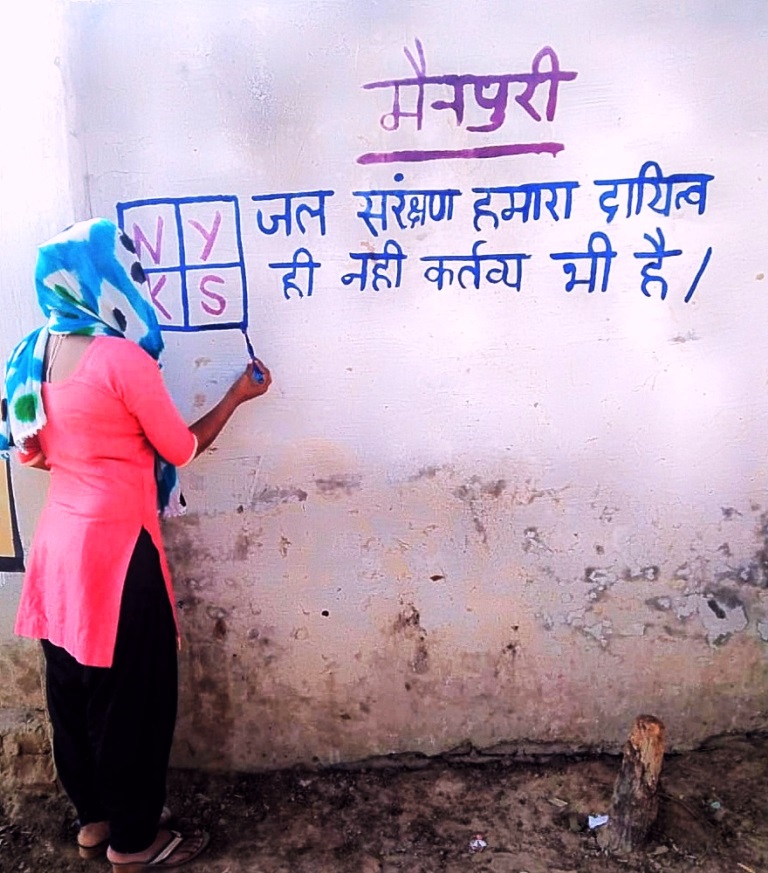 मैनपुरी
N Y
K S
जल सरंक्षण हमारा दायित्व
ही नही कर्तव्य भी है।